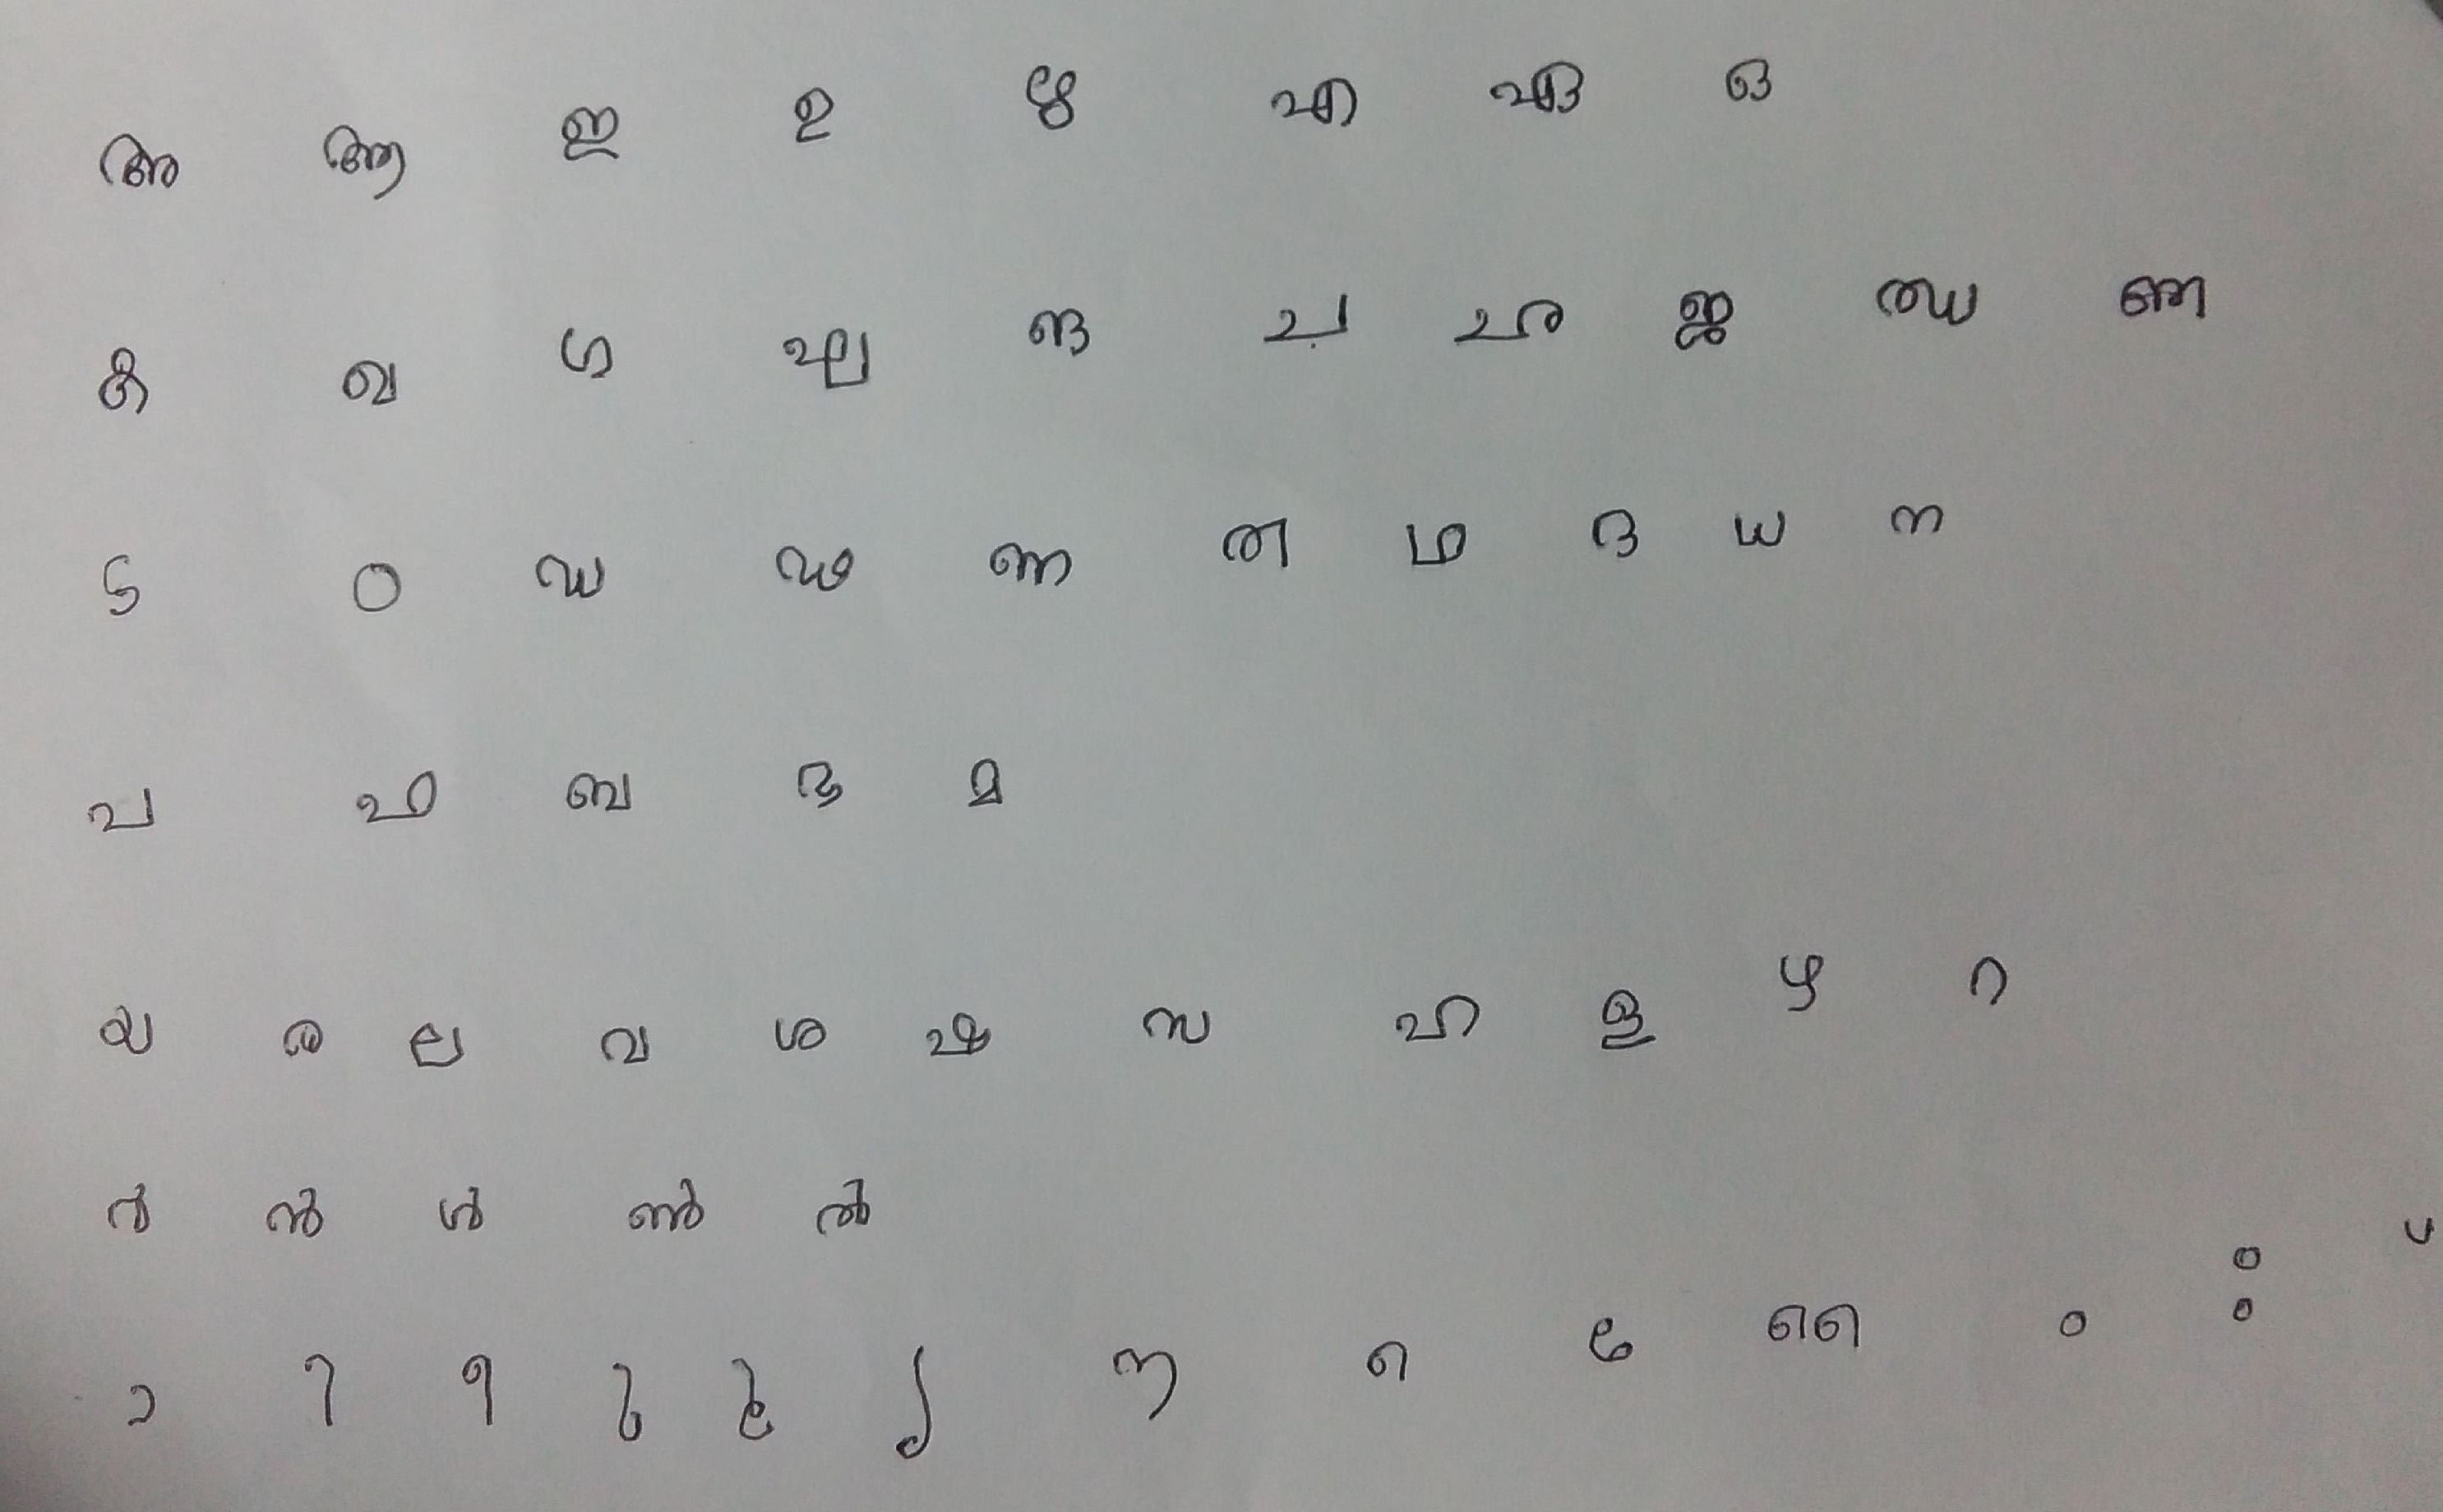 അ ആ ഇ ഉ ഋ എ ഏ ഒ
ക ഖ ഗ ഘ ങ ച ഛ ജ ഝ ഞ
ട ഠ ഡ ഢ ണ ത ഥ ദ ധ ന
പ ഫ ബ ഭ മ
യ ര ല വ ശ ഷ സ ഹ ള ഴ റ
ർ ൻ ൾ ൺ ൽ
ാ ി ീ ു ൂ ൃ ന്ന െ േ ൈ ം ഃ ്